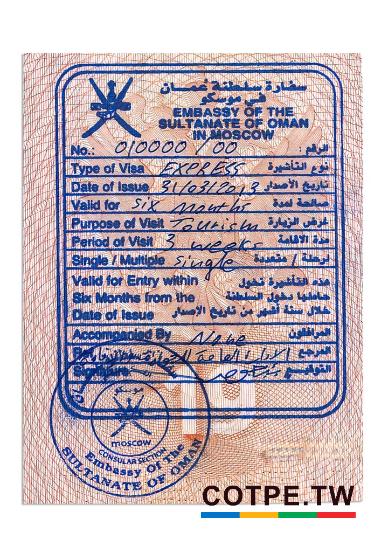 سفارة سلطنة عمان
في موسكو
EMBASSY OF THE
SULTANATE OF OMAN
IN MOSCOW
No.: 010000 / 00 الرقم :
Type of Visa EXPRESS نوع التأشيرة
Date of Issue 31/03/2013 تاريخ الأصدار
Valid for six months صالحة لمدة
Purpose of Visit Tourism غرض الزيارة
Period of Visit 3 weeks مدة الاقامة
Single / Multiple single لرحلة / متعددة
Valid for Entry within هذه التأشيرة تخول
Six Months from the حاملها دخول السلطنة
Date of Issue خلال ستة أشهر من تاريخ الإصدار
Accompanied By None المرافقون
Ref المرجع
Signature التوقيع
moscow
CONSULAR SECTION
Embassy of the
SULTANATE OF OMAN
COTPE.TW